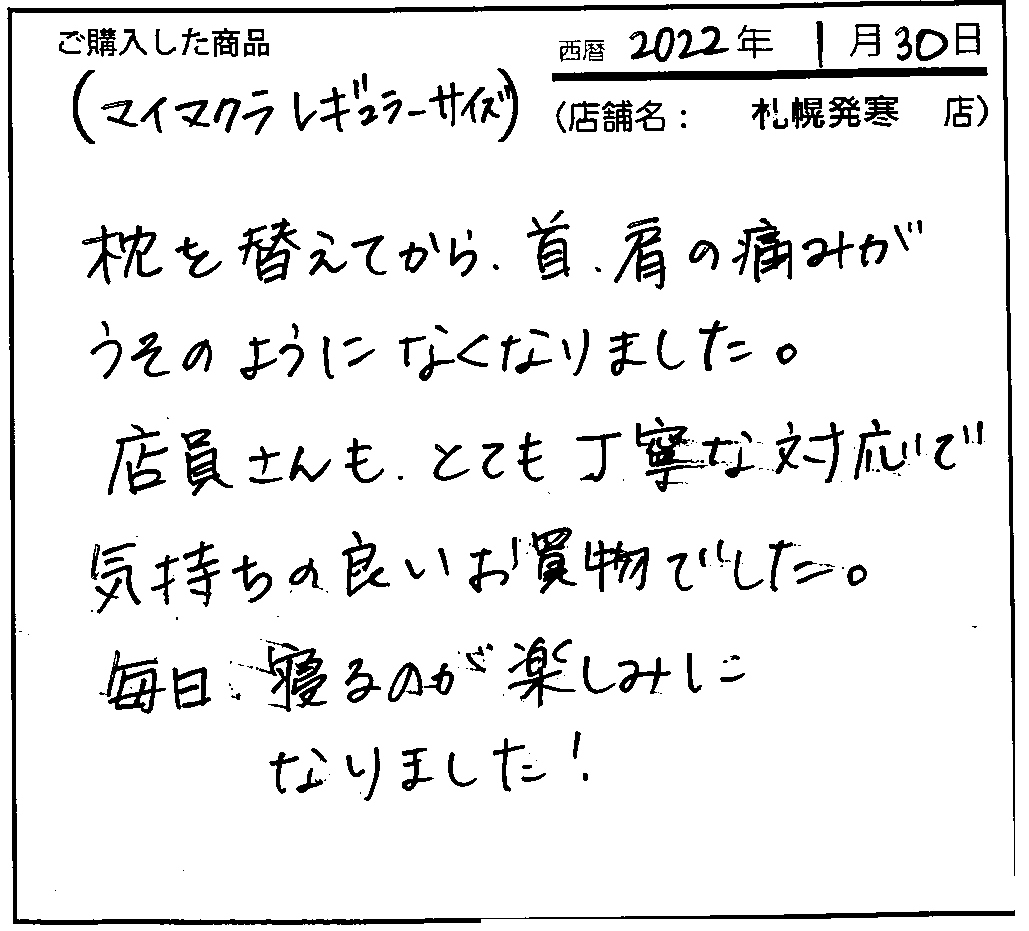 ご購入した商品
西暦 2022年 1月30日
(マイマクラ レギュラーサイズ)
(店舗名: 札幌発寒 店)
枕を替えてから、首、肩の痛みが
うそのようになくなりました。
店員さんも、とても丁寧な対応で
気持ちの良いお買物でした。
毎日、寝るのが楽しみに
なりました!